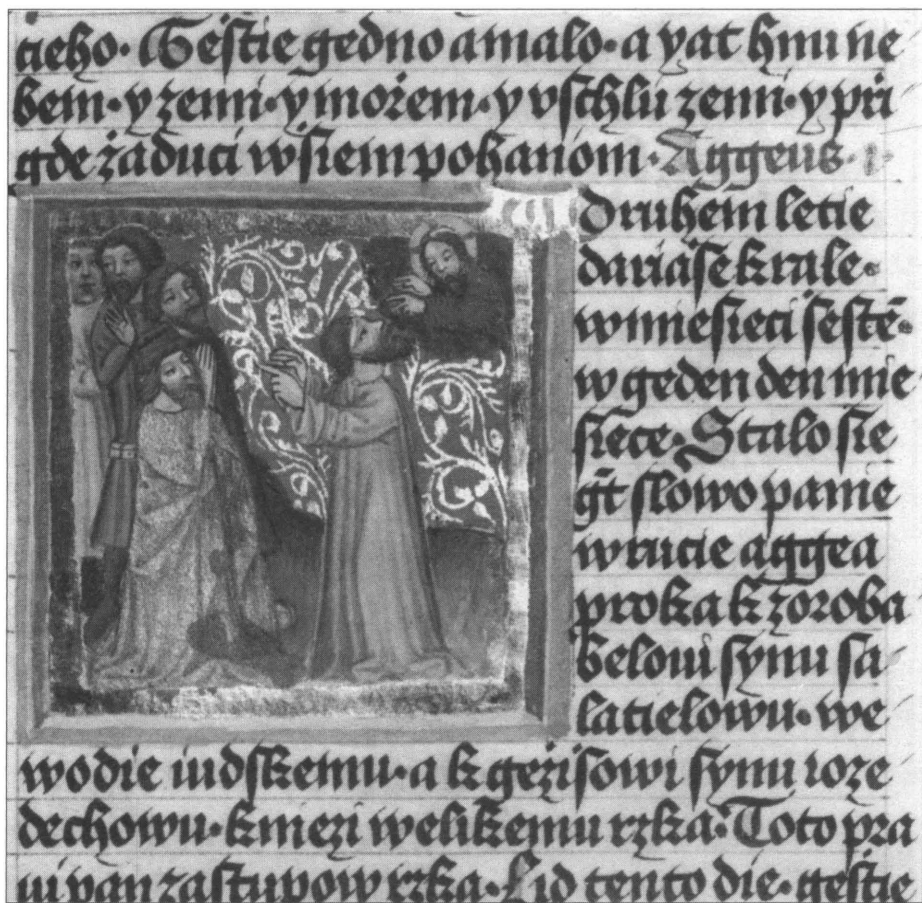 tieho· Gestie gedno a malo· a yat hnu ne
bem· y zemi· y mořem· y vschlú zemi· y při
gde žaducí wsiem pohanom· Aggeus·
druhem letie
dariáše krále·
w miesieci šestē·
w geden den mie
siece· Stalo sie
gt slowo panie
w rucie aggea
proka k zoroba
belowi synu sa
latielowu· we
wodie iudskemu· a k gežisowi synu ioze
dechowu· kniezi welikemu rzka· Toto pra
wi pan zastupow rzka· Lid tento die· gestie